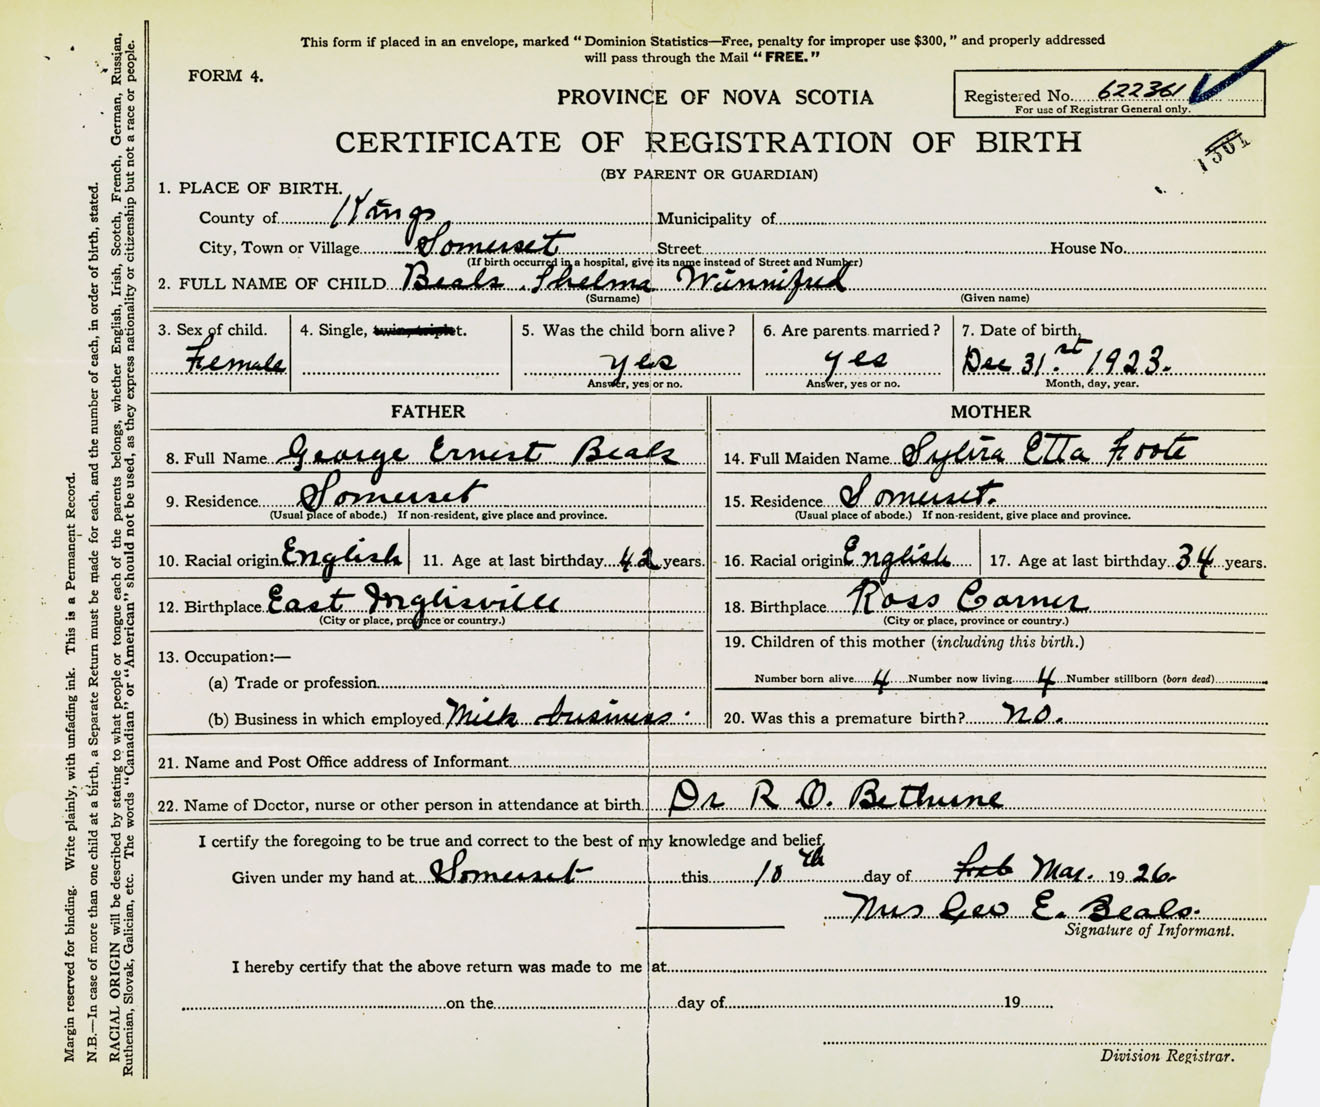 This form if placed in an envelope, marked "Dominion Statistics—Free, penalty for improper use $300," and properly addressed
will pass through the Mail "FREE."
FORM 4.
PROVINCE OF NOVA SCOTIA
Registered No. 622361
For use of Registrar General only.
CERTIFICATE OF REGISTRATION OF BIRTH
1501
(BY PARENT OR GUARDIAN)
1. PLACE OF BIRTH.
County of Kings Municipality of
City, Town or Village Somerset Street House No.
(If birth occurred in a hospital, give its name instead of Street and Number)
2. FULL NAME OF CHILD Beals, Thelma Winnifred
(Surname) (Given name)
3. Sex of child. 4. Single, twin, triplet. 5. Was the child born alive? 6. Are parents married? 7. Date of birth,
Female yes yes Dec 31st 1923.
Answer, yes or no. Answer, yes or no. Month, day, year.
FATHER MOTHER
8. Full Name George Ernest Beals 14. Full Maiden Name Sylvia Etta Foote
9. Residence Somerset 15. Residence Somerset.
(Usual place of abode.) If non-resident, give place and province. (Usual place of abode.) If non-resident, give place and province.
10. Racial origin English 11. Age at last birthday 42 years. 16. Racial origin English 17. Age at last birthday 34 years.
12. Birthplace East Inglisville 18. Birthplace Ross Corner
(City or place, province or country.) (City or place, province or country.)
13. Occupation:— 19. Children of this mother (including this birth.)
(a) Trade or profession Number born alive 4 Number now living 4 Number stillborn (born dead)
(b) Business in which employed Milk business. 20. Was this a premature birth? no.
21. Name and Post Office address of Informant
22. Name of Doctor, nurse or other person in attendance at birth Dr R O. Bethune
I certify the foregoing to be true and correct to the best of my knowledge and belief,
Given under my hand at Somerset this 10th day of Feb Mar. 1926.
Mrs Geo E. Beals.
Signature of Informant.
I hereby certify that the above return was made to me at
on the day of 19
Division Registrar.
Margin reserved for binding. Write plainly, with unfading ink. This is a Permanent Record.
N.B.—In case of more than one child at a birth, a Separate Return must be made for each, and the number of each, in order of birth, stated.
RACIAL ORIGIN will be described by stating to what people or tongue each of the parents belongs, whether English, Irish, Scotch, French, German, Russian,
Ruthenian, Slovak, Galician, etc. The words "Canadian" or "American" should not be used, as they express nationality or citizenship but not a race or people.